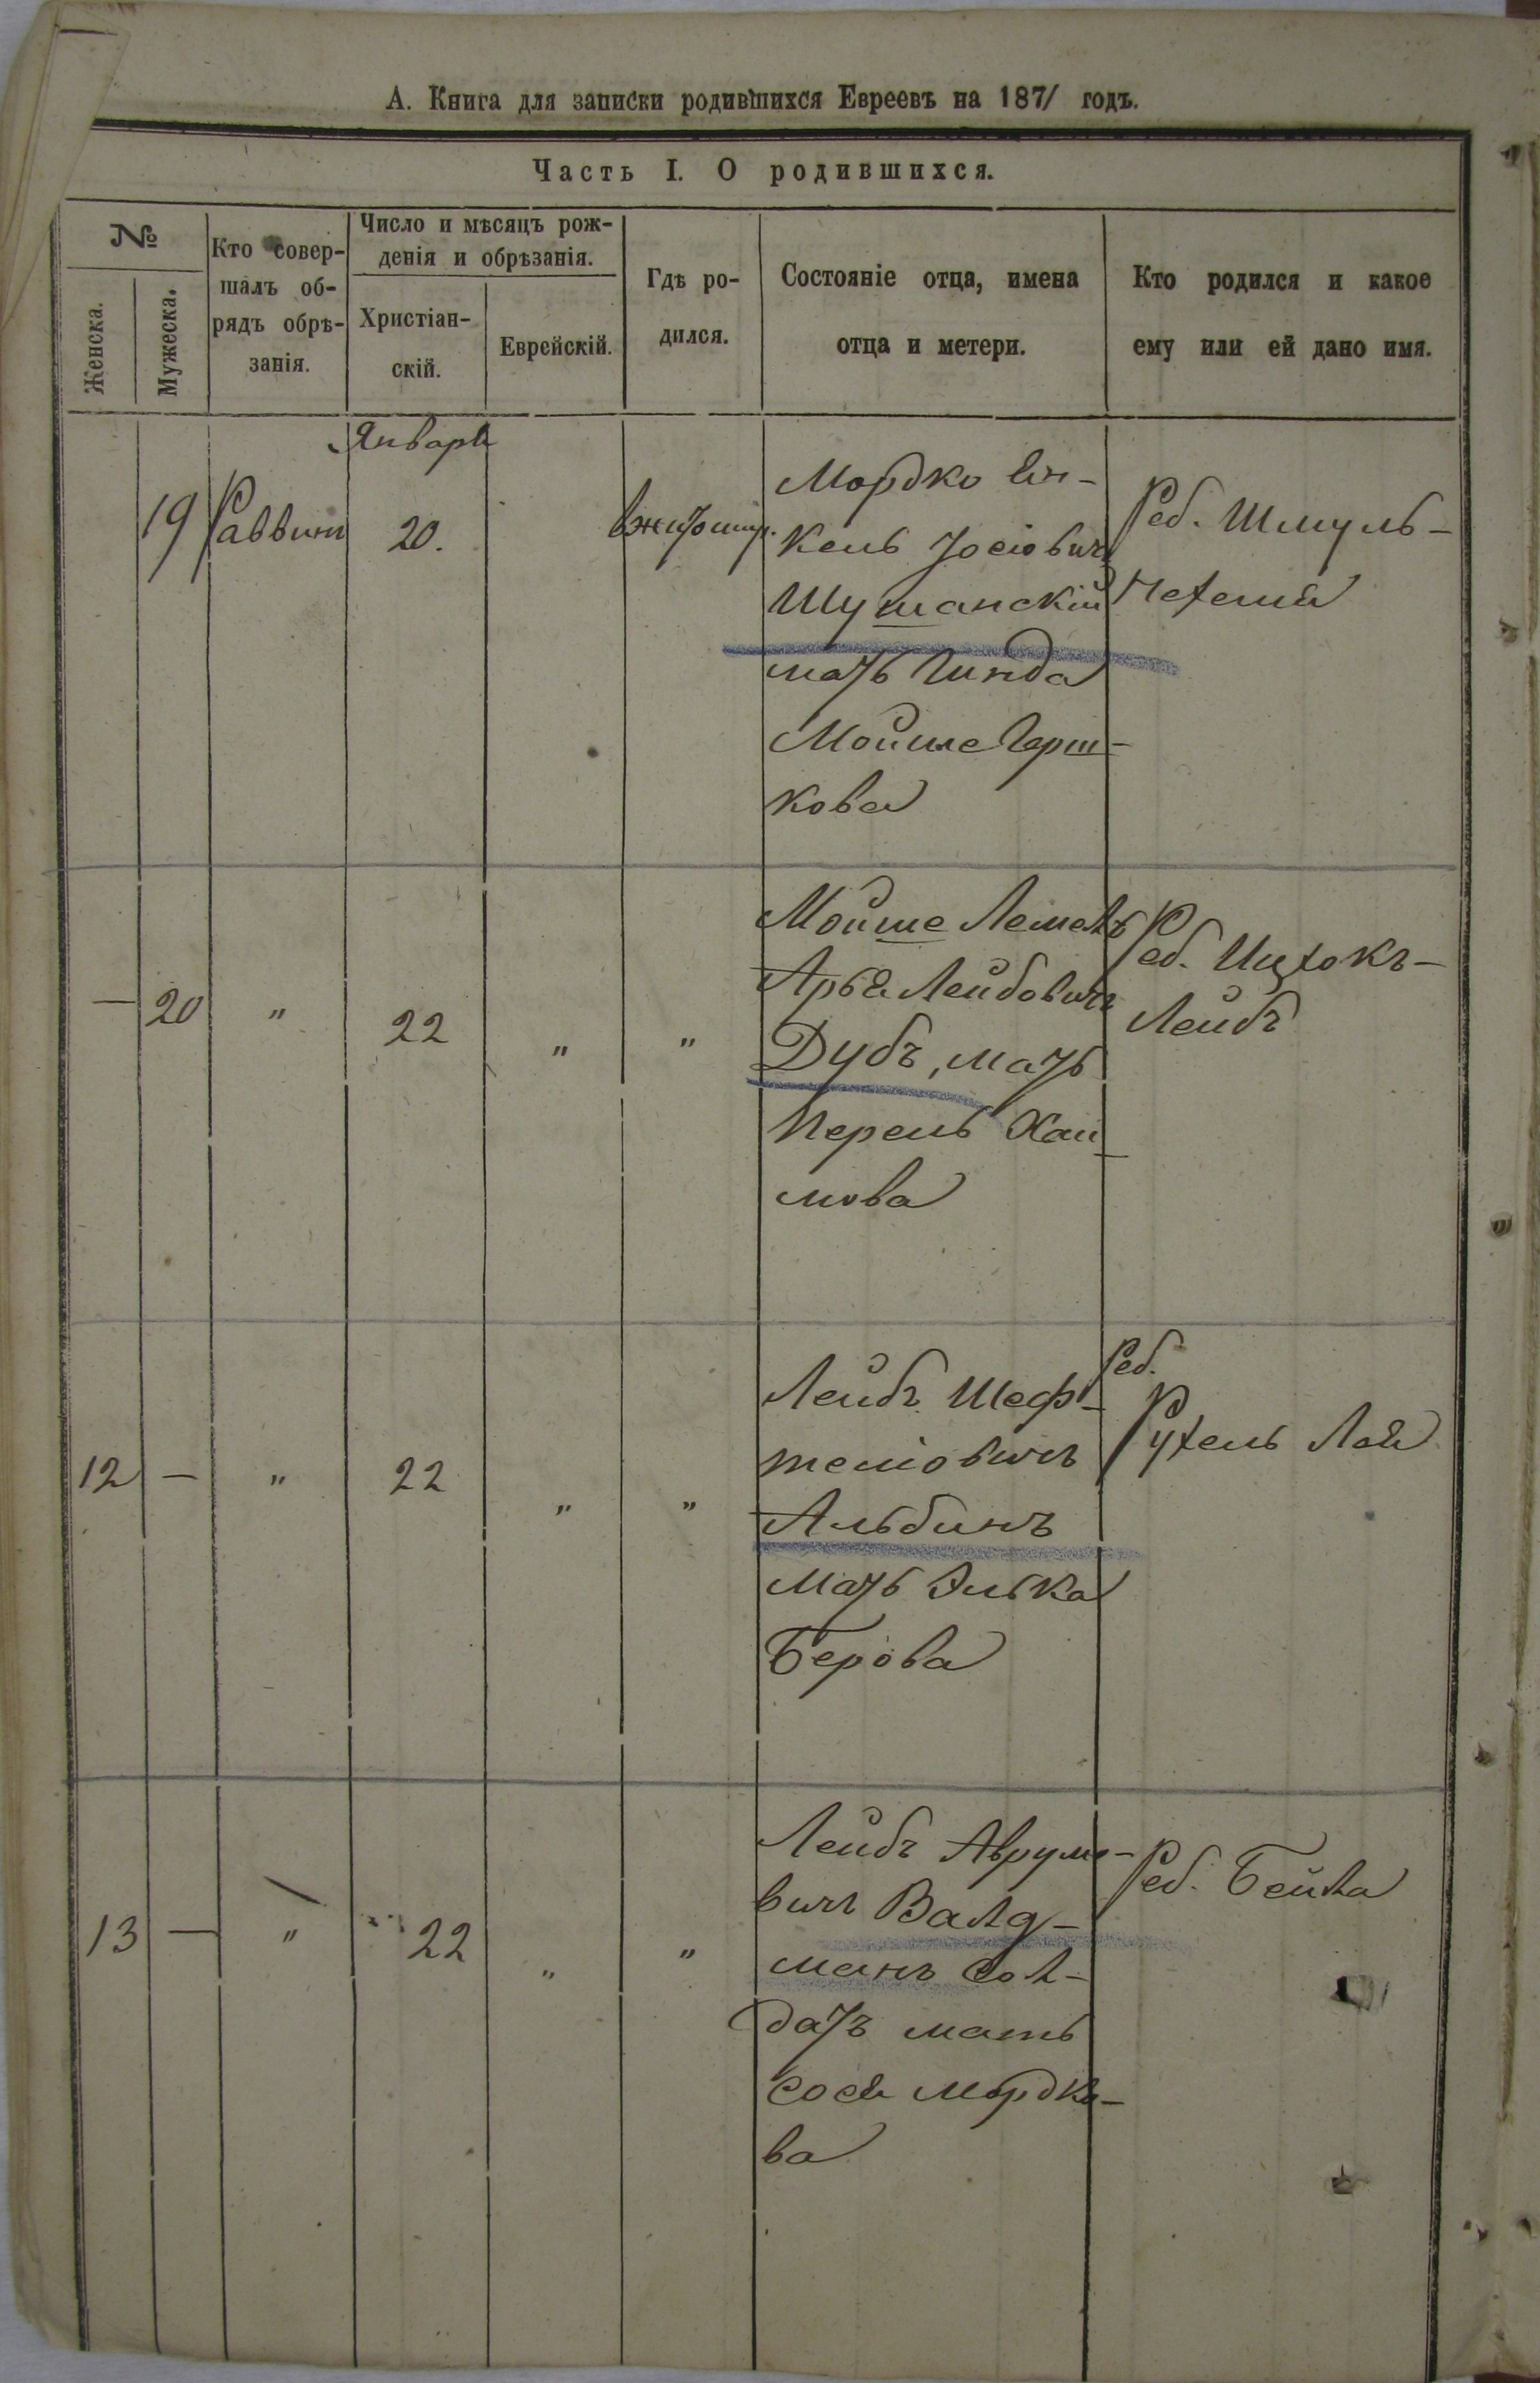 А. Книга для записки родившихся Евреевъ на 1871 годъ.
Часть I. О родившихся.
№
Женска.
Мужеска.
Кто совер-
шалъ об-
рядъ обрѣ-
занія.
Число и мѣсяцъ рож-
денія и обрѣзанія.
Христіан-
скій.
Еврейскій.
Гдѣ ро-
дился.
Состояніе отца, имена
отца и метери.
Кто родился и какое
ему или ей дано имя.
Января
19 Раввин 20.
Мордко
Кель Іосіовичъ
Шушанскій
мать Гинда
Мойше Герш-
кова
Реб. Шмуль-
Нехемія
— 20 " 22 " "
Мойше Лемель
Арья Лейбовичъ
Дубъ, мать
Перель Хаи
мова
Реб. Ицхокъ-
Лейбъ
12 — " 22 " "
Лейбъ Шеф-
теліовичъ
Альбинъ
мать Элька
Берова
Реб.
Рухель Лая
13 — " 22 " "
Лейбъ Аврумо-
вичъ Валд-
манъ сол-
датъ мать
Сося Мордко-
ва
Реб. Бейла